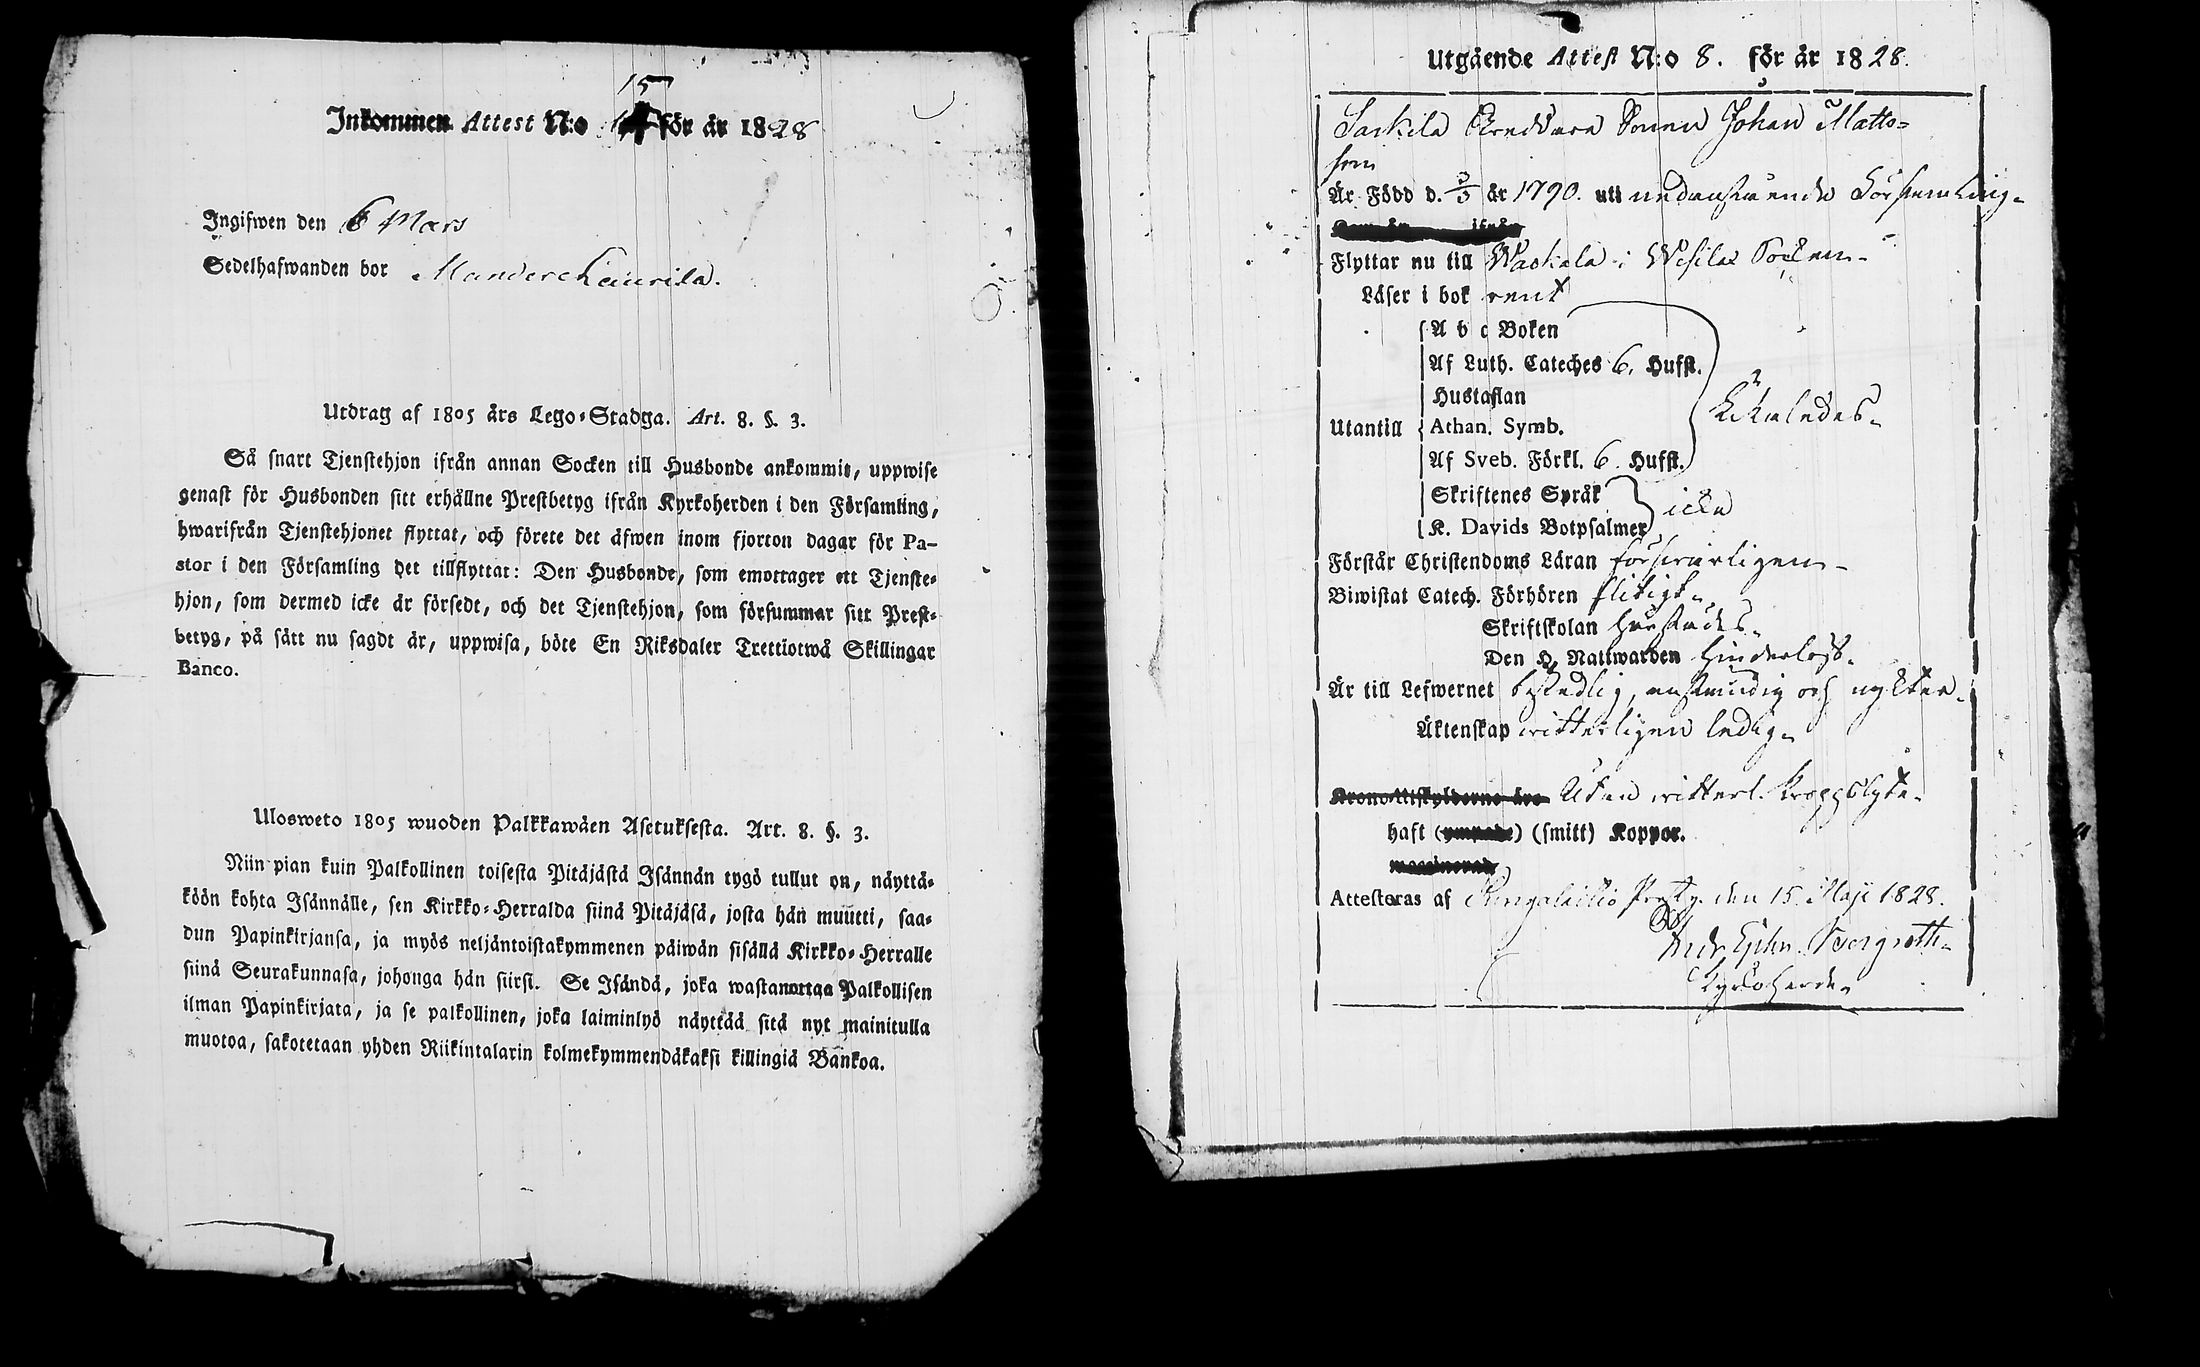 15
Inkommen Attest N:o för år 1828
Ingifwen den 6 Mars
Sedelhafwanden bor
Utdrag af 1805 års Lego-Stadga. Art. 8. §. 3.
Så snart Tjenstehjon ifrån annan Socken till Husbonde ankommit, uppwise
genast för Husbonden sitt erhållne Prestbetyg ifrån Kyrkoherden i den Församling,
hwarifrån Tjenstehjonet flyttat, och förete det äfwen inom fjorton dagar för Pa-
stor i den Församling det tillflyttat: Den Husbonde, som emottager ett Tjenste-
hjon, som dermed icke är försedt, och det Tjenstehjon, som försummar sitt Prest-
betyg, på sätt nu sagdt är, uppwisa, böte En Riksdaler Trettiotwå Skillingar
Banco.
Ulosweto 1805 wuoden Palkkawäen Asetuksesta. Art. 8. §. 3.
Niin pian kuin Palkollinen toisesta Pitäjästä Isännän tygö tullut on, näyttä-
köön kohta Isännälle, sen Kirkko-Herralda siinä Pitäjäsä, josta hän muutti, saa-
dun Papinkirjansa, ja myös neljäntoistakymmenen päiwän sisällä Kirkko-Herralle
siinä Seurakunnasa, johonga hän siirsi. Se Isändä, joka wastanottaa Palkollisen
ilman Papinkirjata, ja se palkollinen, joka laiminlyö näyttää sitä nyt mainitulla
muotoa, sakotetaan yhden Riikintalarin kolmekymmendäkaksi killingiä Bankoa.
Utgående Attest N:o 8. för år 1828.
Sonen Johan Matts-
son
Är Född d. 3/3 år 1790. uti nedanstående Församling-
Flyttar nu till i Wesilax Socken-
Läser i bok rent
A b c Boken
Af Luth. Cateches 6. Hufst.
Hustaflan
Utantill Athan. Symb.
Af Sveb. Förkl. 6. Hufst.
Skriftenes Språk icke
K. Davids Botpsalmer
Förstår Christendoms Läran försvarligen-
Biwistat Catech. Förhören flitigt-
Skriftskolan
Den H. Nattwarden hinderlöst-
Är till Lefwernet beskedlig, anständig och nykter-
Äktenskap witterligen ledig-
Utan witterl. kroppslyte-
haft (smitt) Koppor.
Attesteras af Kangalaillio Prestg. den 15. Maji 1828.
Bergroth-
Kyrkoherde-